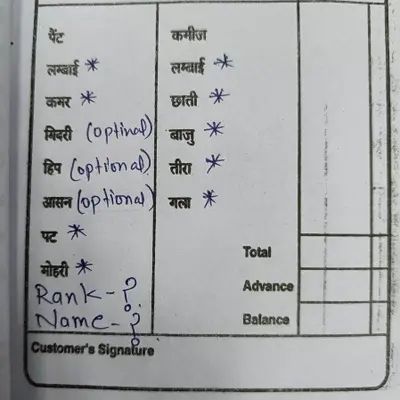 पैंट
लम्बाई *
कमर *
मिदरी (optinal)
हिप (optional)
आसन (optional)
पट *
मोहरी *
Rank - ?
Name - ?
कमीज
लम्बाई *
छाती *
बाजु *
तीरा *
गला *
Total
Advance
Balance
Customer's Signature